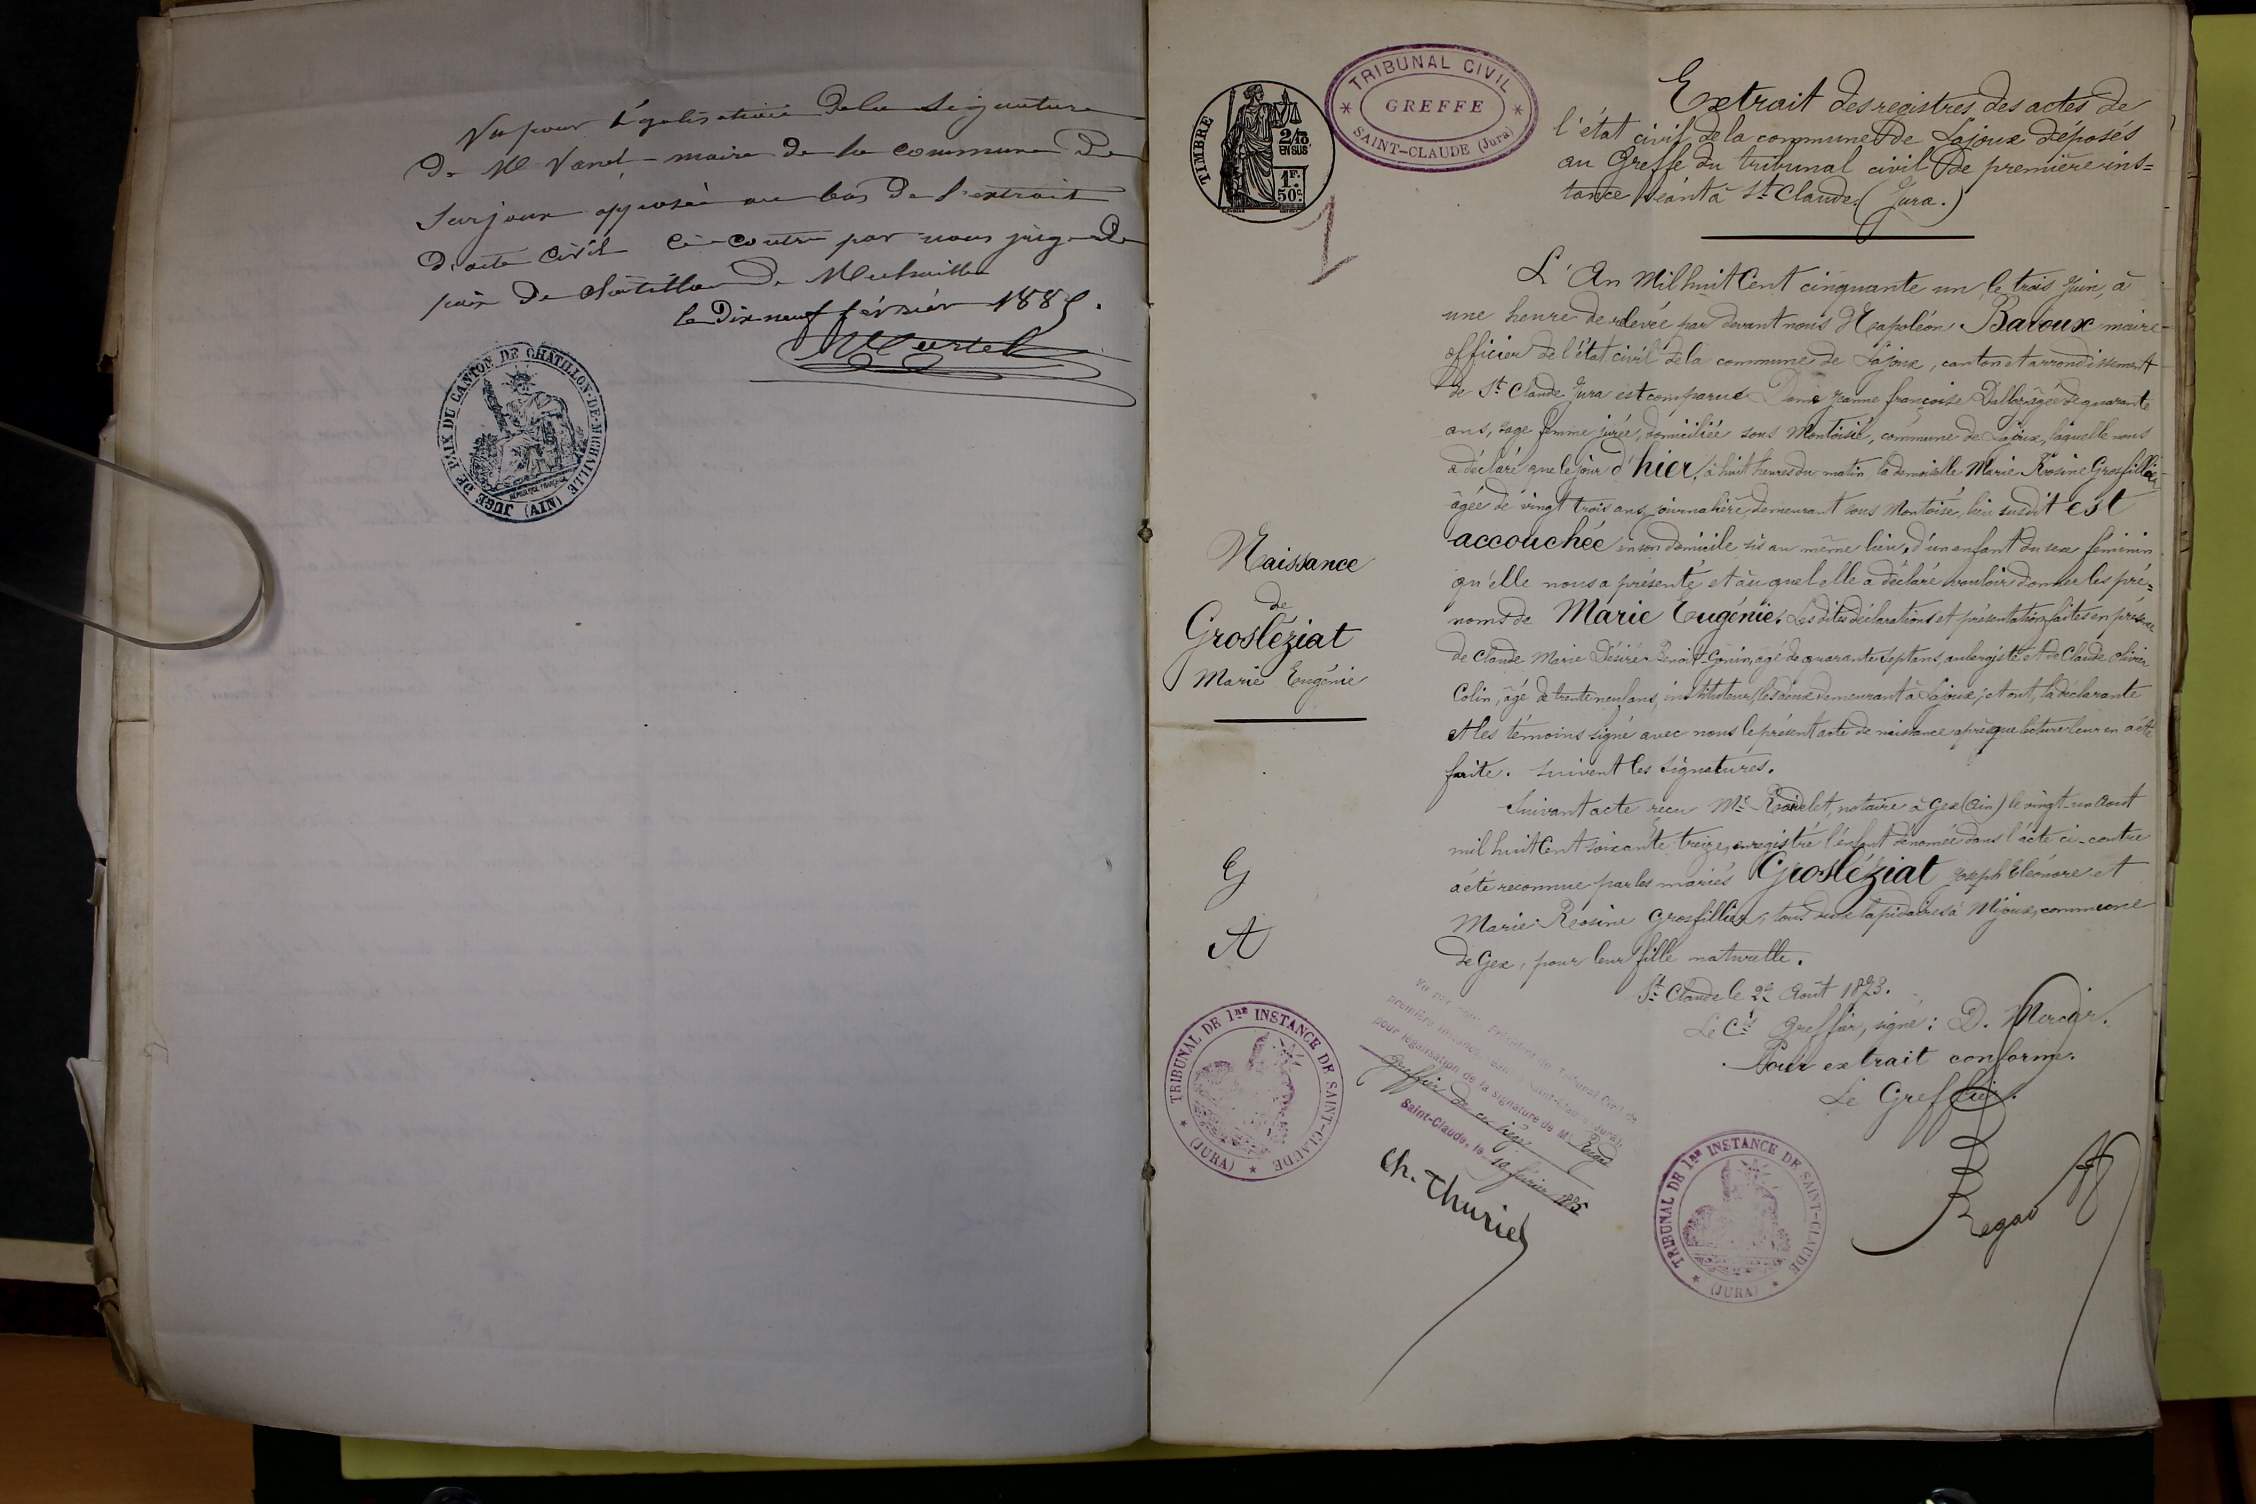 Vu pour légalisation de la signature
de M Vanel maire de la commune de
Surjoux apposée au bas de l'extrait
d'acte civil ci-contre par nous juge de
paix de Châtillon de Michaille
le Dix neuf février 1885.
JUGE DE PAIX DU CANTON DE CHATILLON-DE-MICHAILLE (AIN)
RÉPUBLIQUE FRANÇAISE
TIMBRE
2/10 EN SUS
1F. 50c.
TRIBUNAL CIVIL
GREFFE
SAINT-CLAUDE (Jura)
1
Extrait des registres des actes de
l'état civil de la commune de Lajoux déposés
au Greffe du tribunal civil de première ins=
tance séant à St Claude. (Jura.)
L'An Mil huit Cent cinquante un le trois Juin, à
une heure de relevée par devant nous Napoléon Baroux maire
officier de l'état civil de la commune de Lajoux, canton et arrondissement
de St Claude Jura est comparue Dame Jeanne françoise Dalloz âgée de quarante
ans, sage femme jurée, domiciliée sous Montoisé, commune de Lajoux, laquelle nous
a déclaré que le jour d'hier, à huit heures du matin la demoiselle Marie Rosine Grosfillex
âgée de vingt trois ans, journalière, demeurant sous Montoisé, lieu susdit est
accouchée en son domicile sis au même lieu, d'un enfant du sexe féminin
qu'elle nous a présenté et auquel elle a déclaré vouloir donner les pré=
noms de Marie Eugénie. Les dites déclarations et présentation faites en présence
de Claude Marie Désiré Benoit-Gonin, âgé de quarante sept ans, aubergiste et de Claude Olivier
Colin, âgé de trente neuf ans, instituteur, les deux demeurant à Lajoux; et ont, la déclarante
et les témoins signé avec nous le présent acte de naissance après que lecture leur en a été
faite. suivent les signatures.
Naissance
de
Grosléziat
Marie Eugénie
Suivant acte reçu Me Rodelet, notaire à Gex (Ain) le vingt-un Aout
mil huit Cent soixante treize, enregistré l'enfant dénomée dans l'acte ci-contre
a été reconnue par les mariés Grosléziat Joseph Eléonore et
Marie Rosine Grosfillex, tous deux lapidaires à Mijoux, commune
de Gex, pour leur fille naturelle.
G
A
St Claude le 22 Août 1873.
Le Cis Greffier, signé: D. Mercier.
Pour extrait conforme.
Le Greffier.
Regad
TRIBUNAL DE 1RE INSTANCE DE SAINT-CLAUDE
(JURA)
Vu par nous Président du Tribunal Civil de
première instance séant à Saint-Claude (Jura),
pour légalisation de la signature de Me Regad
Greffier de ce siège
Saint-Claude, le 19 février 1885
Ch. Thuriet
TRIBUNAL DE 1RE INSTANCE DE SAINT-CLAUDE
(JURA)